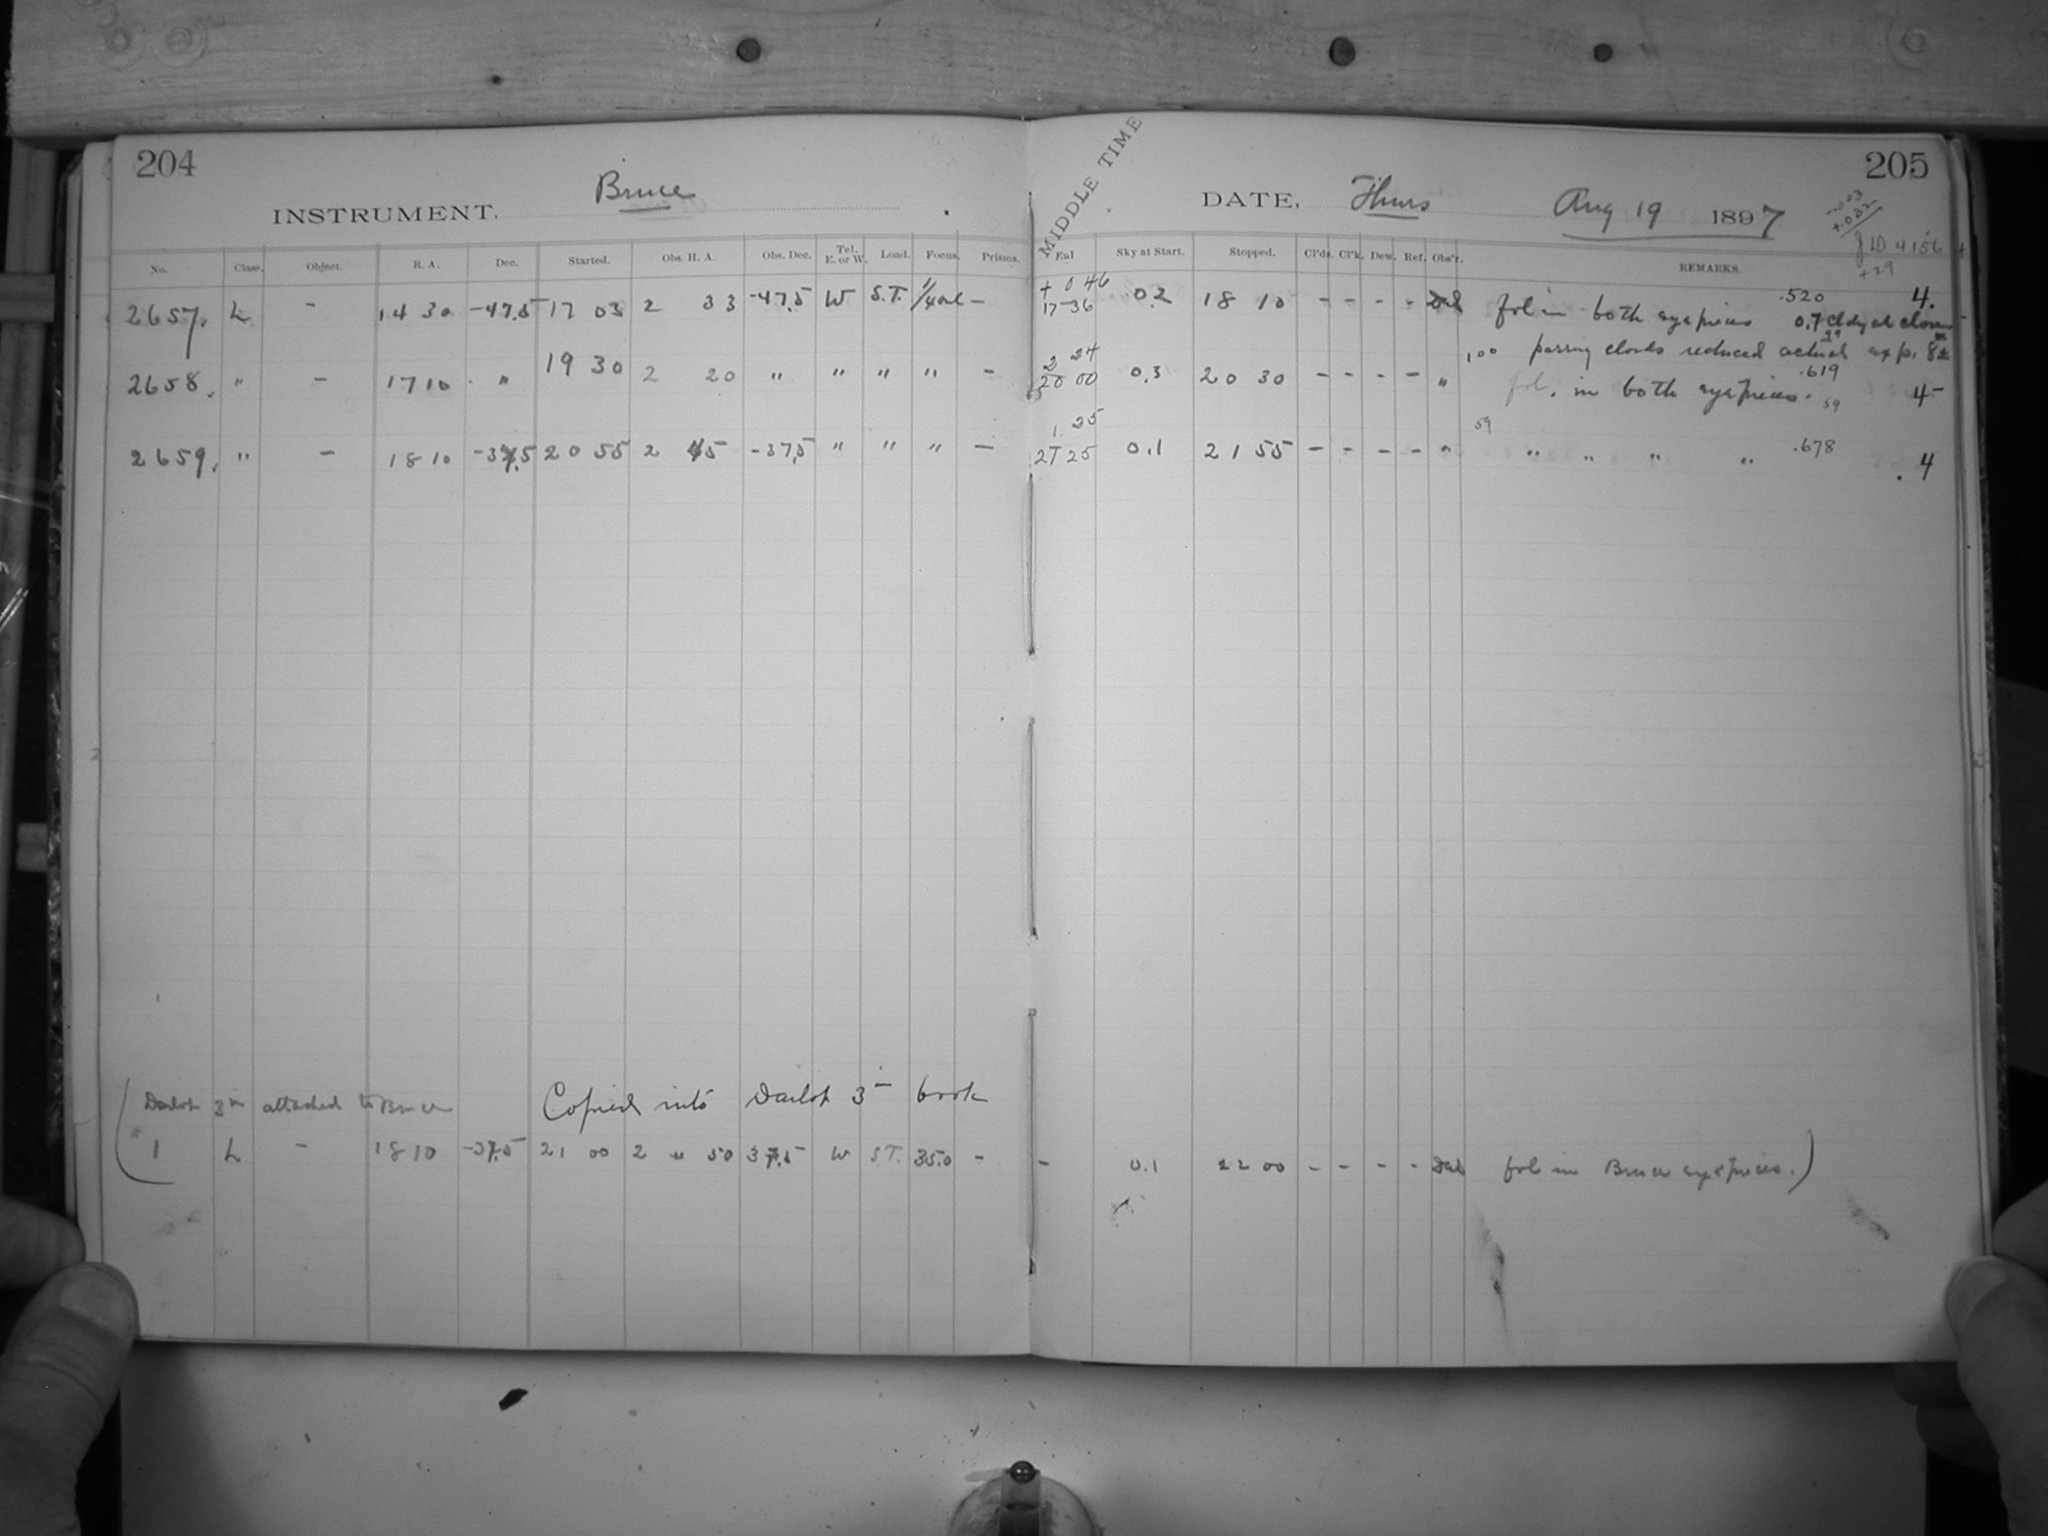 204
INSTRUMENT, Bruce
No. Class. Object. R. A. Dec. Started. Obs. H. A. Obs. Dec. Tel. E. or W. Load. Focus. Prisms.
2657. L - 14 30 -47.5 17 03 2 33 -47.5 W S.T. -
2658. " - 17 10 " 19 30 2 20 " " " " -
2659. " - 18 10 -37.5 20 55 2 45 -37.5 " " " -
(Darlot 3 in attached to Bruce Copied into Darlot 3 in book
" 1 L - 18 10 -37.5 21 00 2 50 37.5 W S.T. 35.0 -
205
MIDDLE TIME
DATE, Thurs Aug 19 1897
-.003
+.032
JD 4156
+29
Eal Sky at Start. Stopped. Cl'ds. Cl'k. Dew. Ref. Obs'r. REMARKS.
+ 0 46
17 36 0.2 18 10 - - - - fol in both eyepieces .520 0.7 cldy at close 4.
2 24 1.00 passing clouds reduced actual exp. 8 ±
20 00 0.3 20 30 - - - - " fol. in both eyepieces. .619 4-
1 25 59 59
21 25 0.1 21 55 - - - - " " " " " .678 .4
- 0.1 22 00 - - - - fol in Bruce eyepieces.)